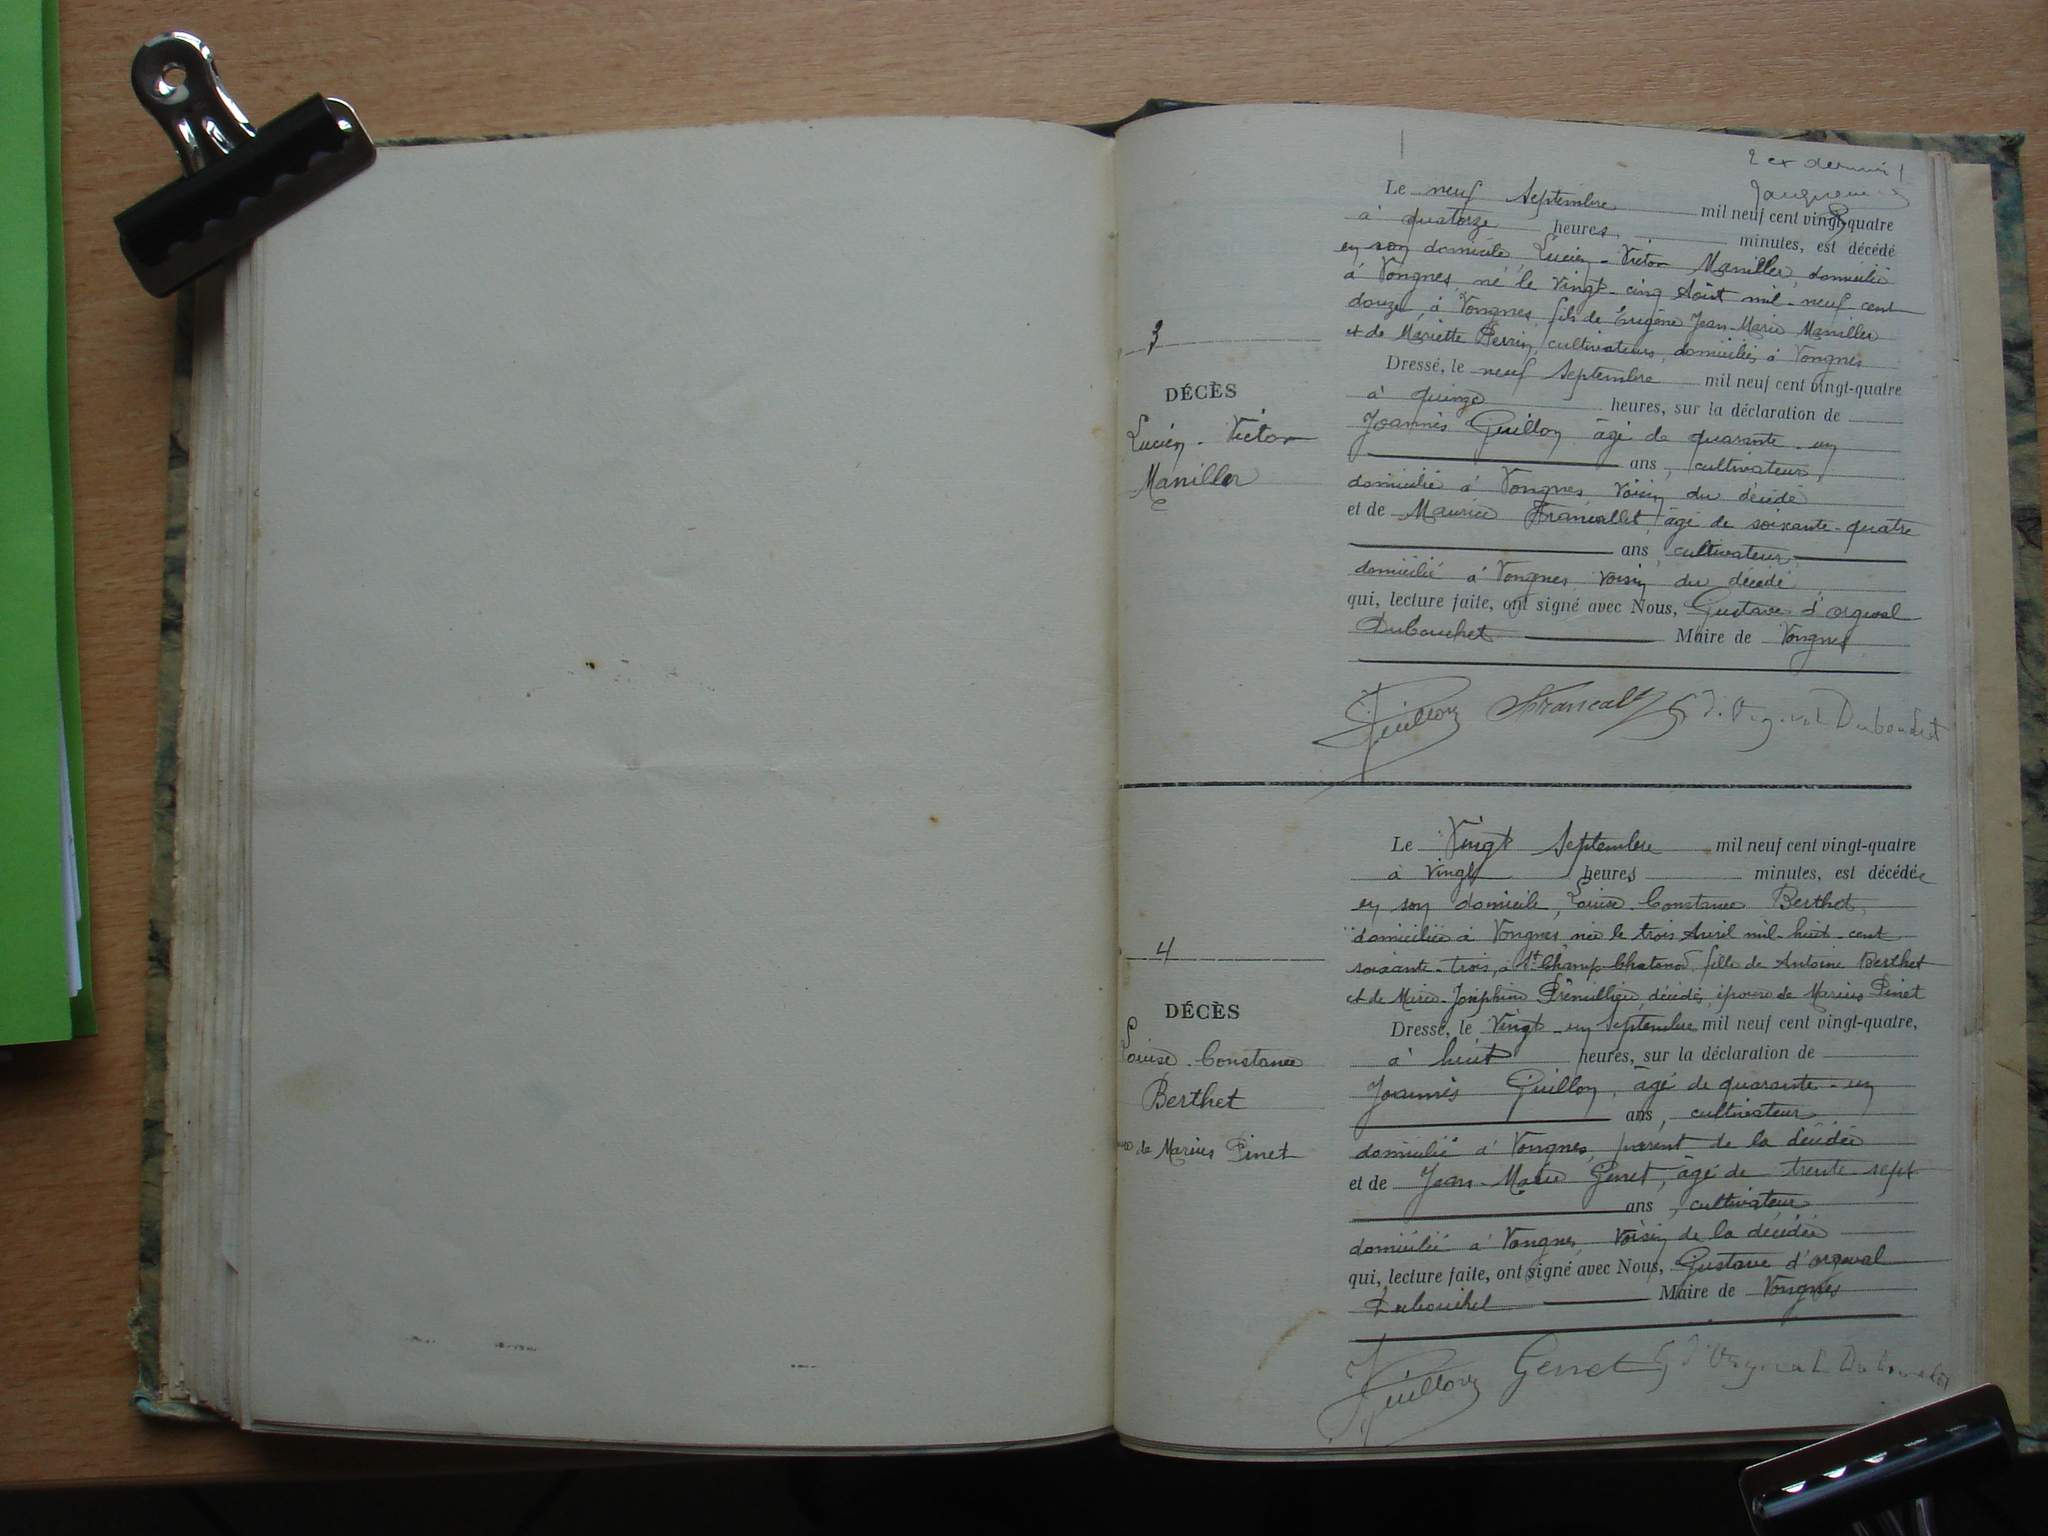 Le neuf Septembre mil neuf cent vingt-quatre
à quatorze heures, minutes, est décédé
en son domicile, Lucien-Victor Maniller, domicilié
à Vongnes, né le vingt-cinq Août mil-neuf cent
douze, à Vongnes, fils de Eugène Jean-Marie Maniller
et de Mariette Perrin, cultivateurs, domiciliés à Vongnes
Dressé, le neuf Septembre mil neuf cent vingt-quatre
à quinze heures, sur la déclaration de
Joannès Guillon, âgé de quarante-un
ans, cultivateur,
domicilié à Vongnes, voisin du décédé
et de Maurice Francallet, âgé de soixante-quatre
ans, cultivateur,
domicilié à Vongnes, voisin du décédé,
qui, lecture faite, ont signé avec Nous, Gustave d'orgeval
Dubouchet Maire de Vongnes
3
DÉCÈS
Lucien-Victor
Maniller
Guillon G d'Orgeval Dubouchet
Le Vingt Septembre mil neuf cent vingt-quatre
à vingt heures minutes, est décédée
en son domicile, Louise-Constance Berthet,
domiciliée à Vongnes, née le trois Avril mil-huit-cent
soixante-trois, à St Champ-Chatonod, fille de Antoine Berthet
et de Marie-Joséphine décédés, épouse de Marius Pinet
Dressé, le vingt-un Septembre mil neuf cent vingt-quatre,
à huit heures, sur la déclaration de
Joannès Guillon, âgé de quarante-un
ans, cultivateur
domicilié à Vongnes, parent de la décédée
et de Jean-Marie Genet, âgé de trente-sept
ans, cultivateur
domicilié à Vongnes, voisin de la décédée
qui, lecture faite, ont signé avec Nous, Gustave d'orgeval
Dubouchet Maire de Vongnes
4
DÉCÈS
Louise-Constance
Berthet
de Marius Pinet
Guillon Genet G d'Orgeval Dubouchet